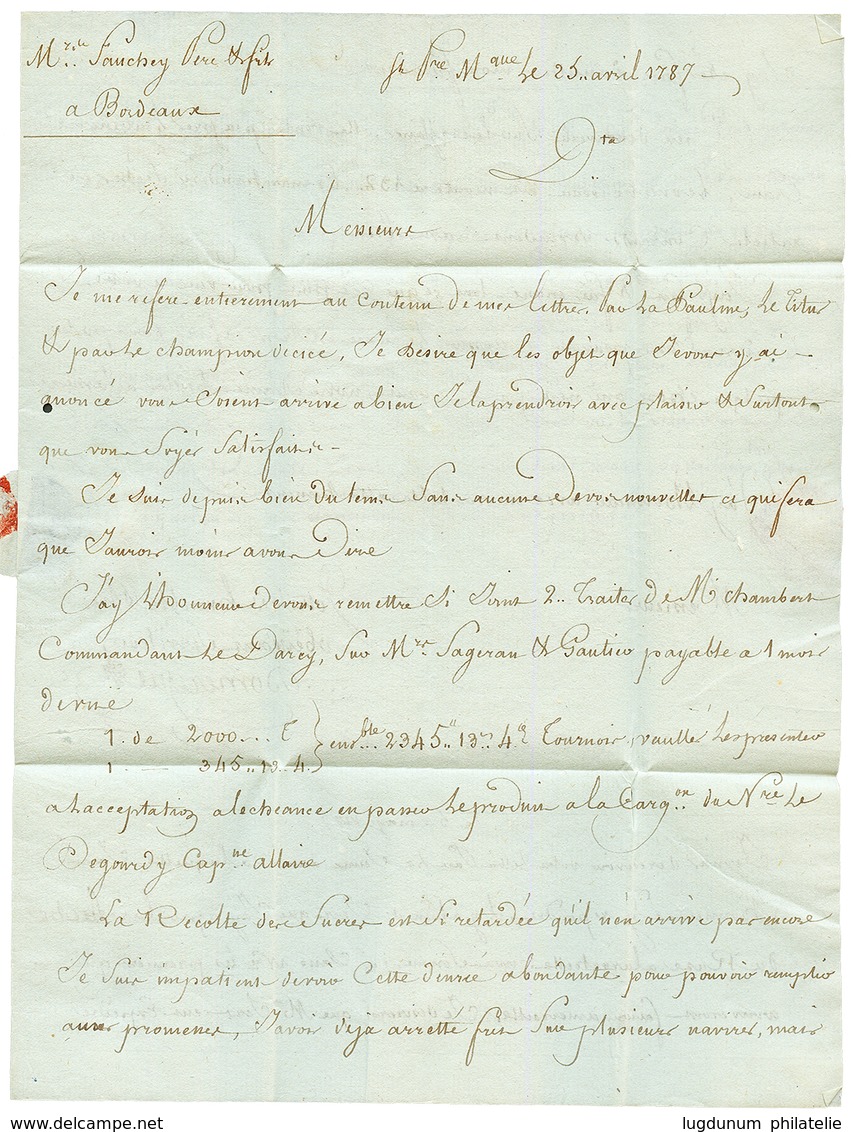 Mrs. Fauchey Pere & fils
a Bordeaux
St Pre Mque Le 25.. avril 1787
Dta
Messieurs
Je me refere entierement au Contenu De mes lettres, Par La Pauline, Le Titus
& par Le champion d'icicé, Je Desire que les objet que Je vous y ai
anoncé vous Soient arrivé a bien Je l'aprendrois avec plaisir & Surtout
que vous Soyés Satisfaits
Je suis depuis bien du tems Sans aucune De vos nouvelles ce qui fera
que J'aurois moins a vous Dire
J'ay L'honneur de vous remettre Ci Joint 2.. Traites de Mr chambert
Commandant Le Darcy, Sur Mrs Sageran & Gautier payable a 1 mois
de vue
1. de 2000... £
1. — 345.. 13.. 4.
ensble 2345" 13s 4d Tournois, vauillé Les presenter
a L'acceptation a l'echeance en passer Le produit a la Cargon du Nre Le
Degourdy Capne allaire
La Recolte des Sucres est Si retardée qu'il n'en arrive pas encore
Je Suis impatient de voir Cette denrée abondante pour pouvoir remplir
aux promesses, J'avois deja arretté fret Sur plusieurs navires, mais
www.delcampe.net
lugdunum philatelie